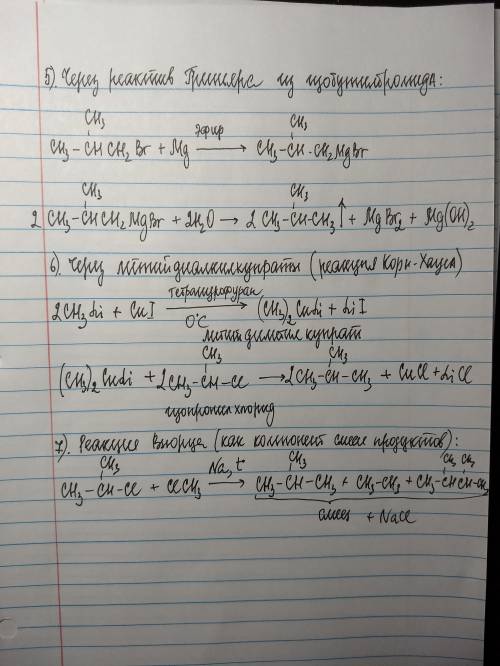 5). Через реактив Гриньяра из изобутилбромида:
CH3
CH3
CH3 - CHCH2Br + Mg эфир → CH3 - CH - CH2MgBr
CH3
CH3
2 CH3 - CHCH2MgBr + 2H2O → 2 CH3 - CH - CH3 ↑ + MgBr2 + Mg(OH)2
6). Через литийдиалкилкупраты (реакция Кори-Хауса)
2CH3Li + CuI тетрагидрофуран 0°C → (CH3)2CuLi + LiI
литий диметил купрат
CH3
CH3
(CH3)2CuLi + 2CH3 - CH - Cl → 2CH3 - CH - CH3 + CuCl + LiCl
изопропил хлорид
7). Реакция Вюрца (как компонент смеси продуктов):
CH3
CH3
CH3 CH3
CH3 - CH - Cl + ClCH3 Na, t → CH3 - CH - CH3 + CH3 - CH3 + CH3 - CHCH - CH3
смесь + NaCl